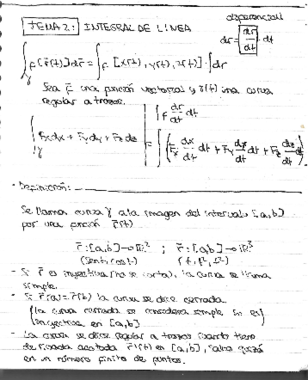 diferencial
TEMA 2: INTEGRAL DE LÍNEA
dr = dr/dt · dt
∫ F[r(t)] dr = ∫ F[x(t), y(t), z(t)] · dr
Sea F una función vectorial y r(t) una curva
regular a trozos.
∫ F dr/dt
∫ Fx dx + Fy dy + Fz dz = ∫ (Fx dx/dt dt + Fy dy/dt dt + Fz dz/dt dt)
• Definición:
Se llama curva γ a la imagen del intervalo [a,b]
por una función r(t)
r: [a,b] → ℝ² ; r: [a,b] → ℝ³
(sent, cost) (t, t², t³)
- Si r es inyectiva (no se corta), la curva se llama
simple.
- Si r(a) = r(b) la curva se dice cerrada
(la curva cerrada se considera simple si es
inyectiva en [a,b]
- La curva se dice regular a trozos cuando tiene
derivada acotada r'(t) en [a,b], salvo quizá
en un número finito de puntos.